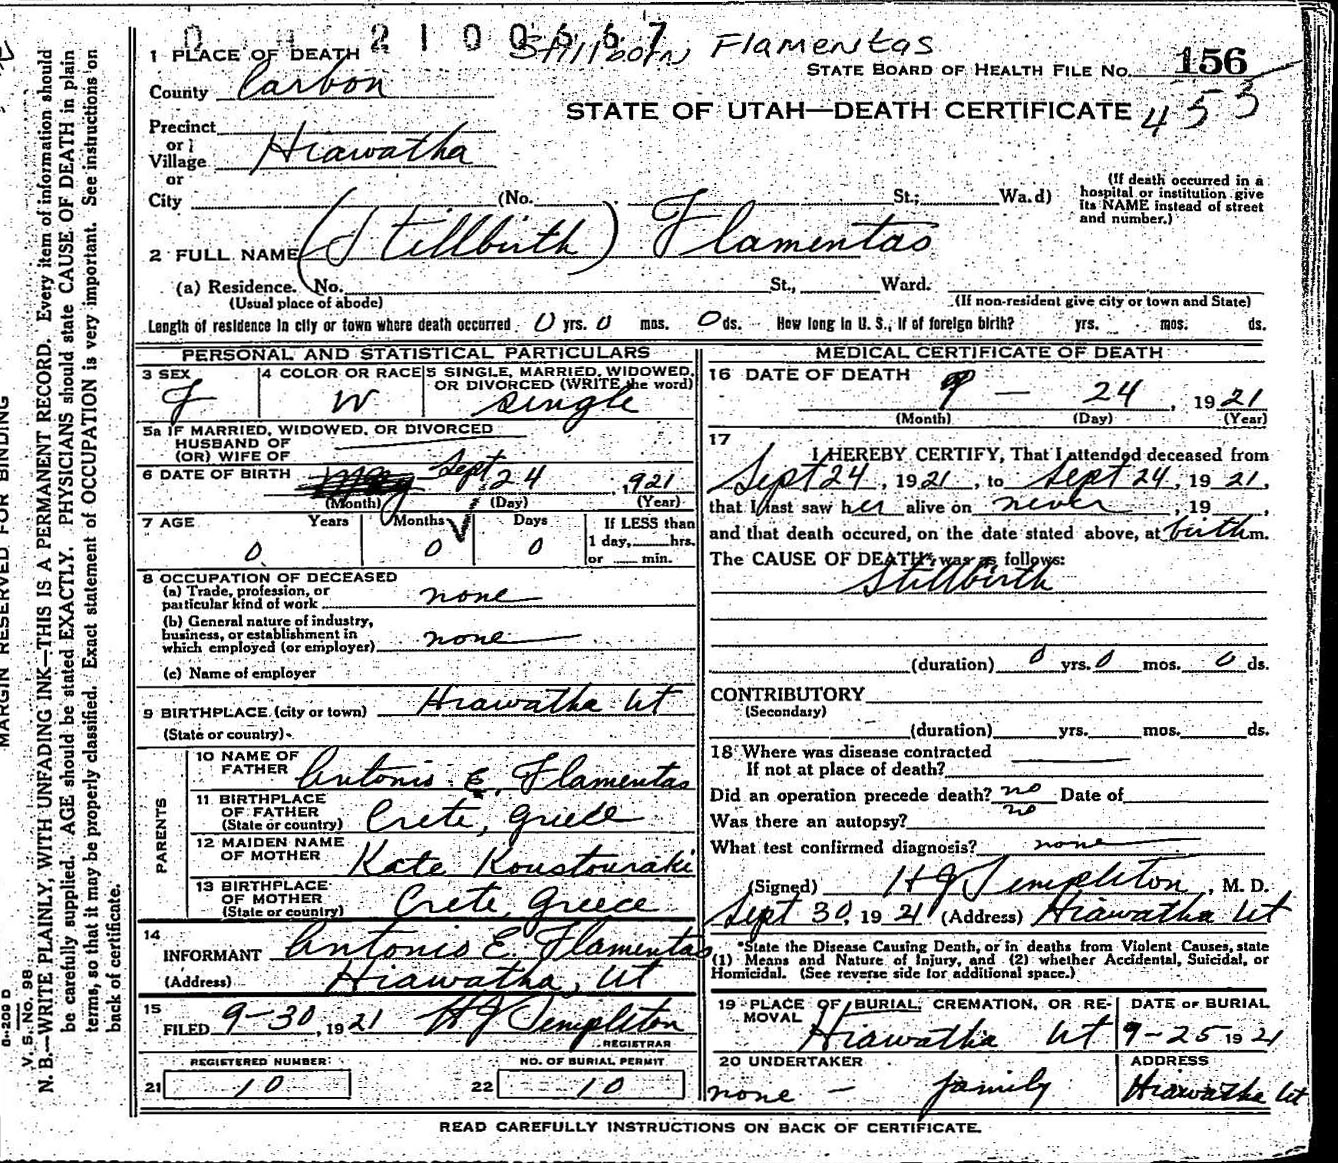 2100667
Stillborn Flamentas
1 PLACE OF DEATH
STATE BOARD OF HEALTH FILE No. 156
County Carbon
STATE OF UTAH—DEATH CERTIFICATE 453
Precinct
or
Village Hiawatha
or
City (No. St.; Ward)
(If death occurred in a
hospital or institution give
its NAME instead of street
and number.)
2 FULL NAME (Stillbirth) Flamentas
(a) Residence. No. St., Ward.
(Usual place of abode) (If non-resident give city or town and State)
Length of residence in city or town where death occurred 0 yrs. 0 mos. 0 ds. How long in U. S., if of foreign birth? yrs. mos. ds.
PERSONAL AND STATISTICAL PARTICULARS
3 SEX 4 COLOR OR RACE 5 SINGLE, MARRIED, WIDOWED,
OR DIVORCED (WRITE the word)
F W single
5a IF MARRIED, WIDOWED, OR DIVORCED
HUSBAND OF
(OR) WIFE OF
6 DATE OF BIRTH Sept 24, 1921
(Month) (Day) (Year)
7 AGE Years Months Days If LESS than
1 day, hrs.
or min.
0 0 0
8 OCCUPATION OF DECEASED
(a) Trade, profession, or
particular kind of work none
(b) General nature of industry,
business, or establishment in
which employed (or employer) none
(c) Name of employer
9 BIRTHPLACE (city or town) Hiawatha Ut
(State or country)
PARENTS
10 NAME OF
FATHER Antonis E. Flamentas
11 BIRTHPLACE
OF FATHER
(State or country) Crete, Griece
12 MAIDEN NAME
OF MOTHER Kate Koustouraki
13 BIRTHPLACE
OF MOTHER
(State or country) Crete, Greece
14
INFORMANT Antonis E. Flamentas
(Address) Hiawatha, Ut
15
FILED 9-30, 1921 HJ Templeton
REGISTRAR
REGISTERED NUMBER NO. OF BURIAL PERMIT
21 10 22 10
MEDICAL CERTIFICATE OF DEATH
16 DATE OF DEATH 9 — 24, 1921
(Month) (Day) (Year)
17
I HEREBY CERTIFY, That I attended deceased from
Sept 24, 1921, to Sept 24, 1921,
that I last saw her alive on never, 19 ,
and that death occured, on the date stated above, at birth m.
The CAUSE OF DEATH* was as follows:
Stillbirth
(duration) 0 yrs. 0 mos. 0 ds.
CONTRIBUTORY
(Secondary)
(duration) yrs. mos. ds.
18 Where was disease contracted
If not at place of death?
Did an operation precede death? no Date of
Was there an autopsy? no
What test confirmed diagnosis? none
(Signed) HJ Templeton, M. D.
Sept 30, 1921 (Address) Hiawatha Ut
*State the Disease Causing Death, or in deaths from Violent Causes, state
(1) Means and Nature of Injury, and (2) whether Accidental, Suicidal, or
Homicidal. (See reverse side for additional space.)
19 PLACE OF BURIAL, CREMATION, OR RE-
MOVAL
Hiawatha Ut
DATE OF BURIAL
9-25-1921
20 UNDERTAKER ADDRESS
none — family Hiawatha Ut
READ CAREFULLY INSTRUCTIONS ON BACK OF CERTIFICATE.
MARGIN RESERVED FOR BINDING
V. S. No. 98
N. B.—WRITE PLAINLY, WITH UNFADING INK—THIS IS A PERMANENT RECORD. Every item of information should
be carefully supplied. AGE should be stated EXACTLY. PHYSICIANS should state CAUSE OF DEATH in plain
terms, so that it may be properly classified. Exact statement of OCCUPATION is very important. See instructions on
back of certificate.